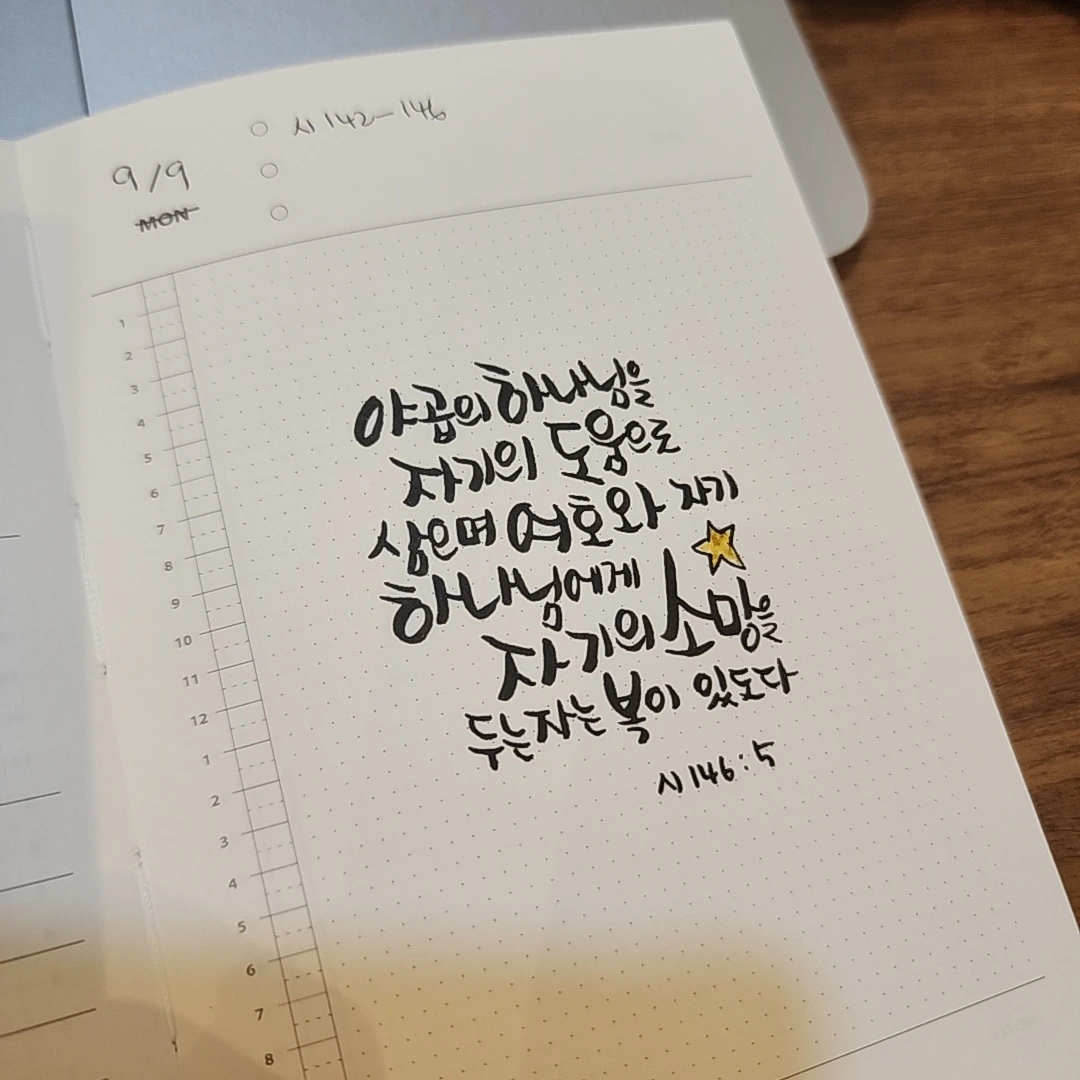 시 142-146
9/9
MON
1
2
3
4
5
6
7
8
9
10
11
12
1
2
3
4
5
6
7
8
야곱의 하나님을
자기의 도움으로
삼으며 여호와 자기
하나님에게
자기의 소망을
두는 자는 복이 있도다
시 146:5